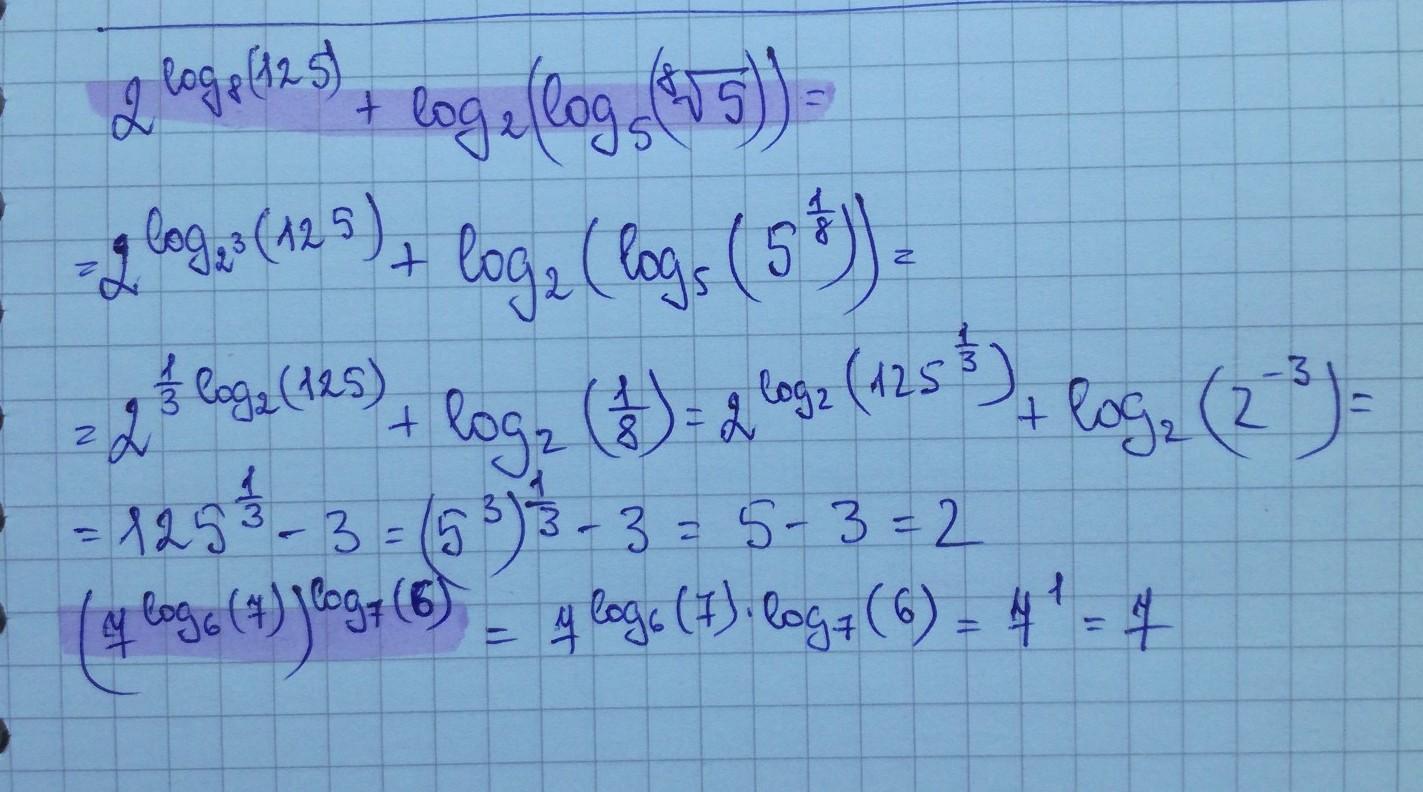 2^{log_8(125)} + log_2(log_5(\sqrt[8]{5})) =
= 2^{log_{2^3}(125)} + log_2(log_5(5^{\frac{1}{8}})) =
= 2^{\frac{1}{3} log_2(125)} + log_2(\frac{1}{8}) = 2^{log_2(125^{\frac{1}{3}})} + log_2(2^{-3}) =
= 125^{\frac{1}{3}} - 3 = (5^3)^{\frac{1}{3}} - 3 = 5 - 3 = 2
(7^{log_6(7)})^{log_7(6)} = 7^{log_6(7) · log_7(6)} = 7^1 = 7